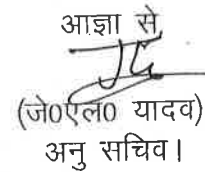 आज्ञा से
(जे०एल० यादव)
अनु सचिव।